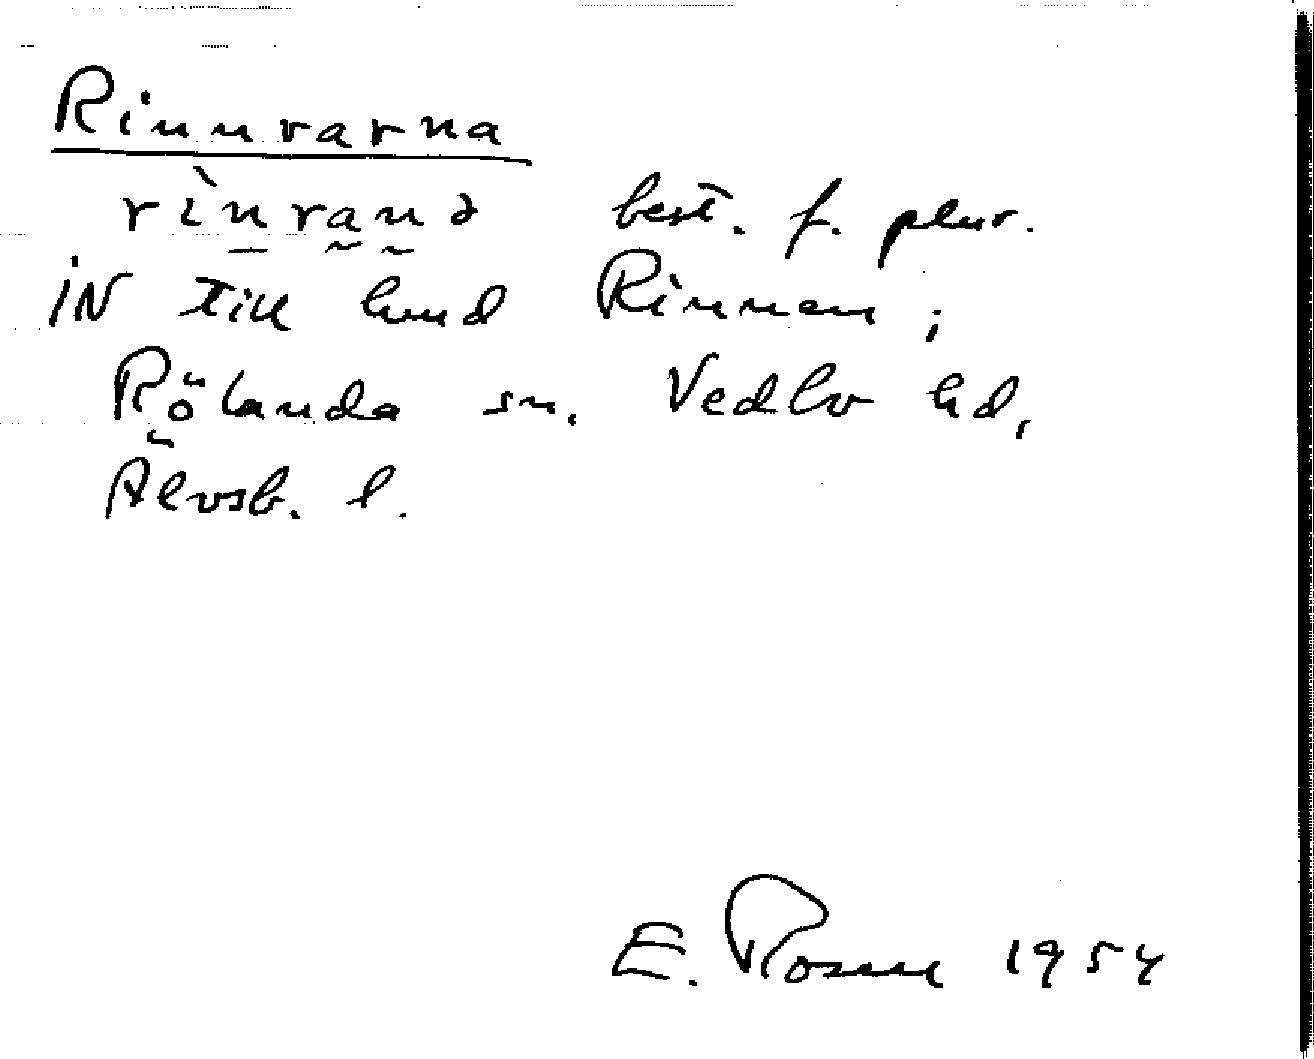 Rinnrarna
rìnranə best. f. plur.
IN till hmd Rinnen ;
Rölanda sn. Vedbo hd,
Älvsb. l.
E. Rosen 1954